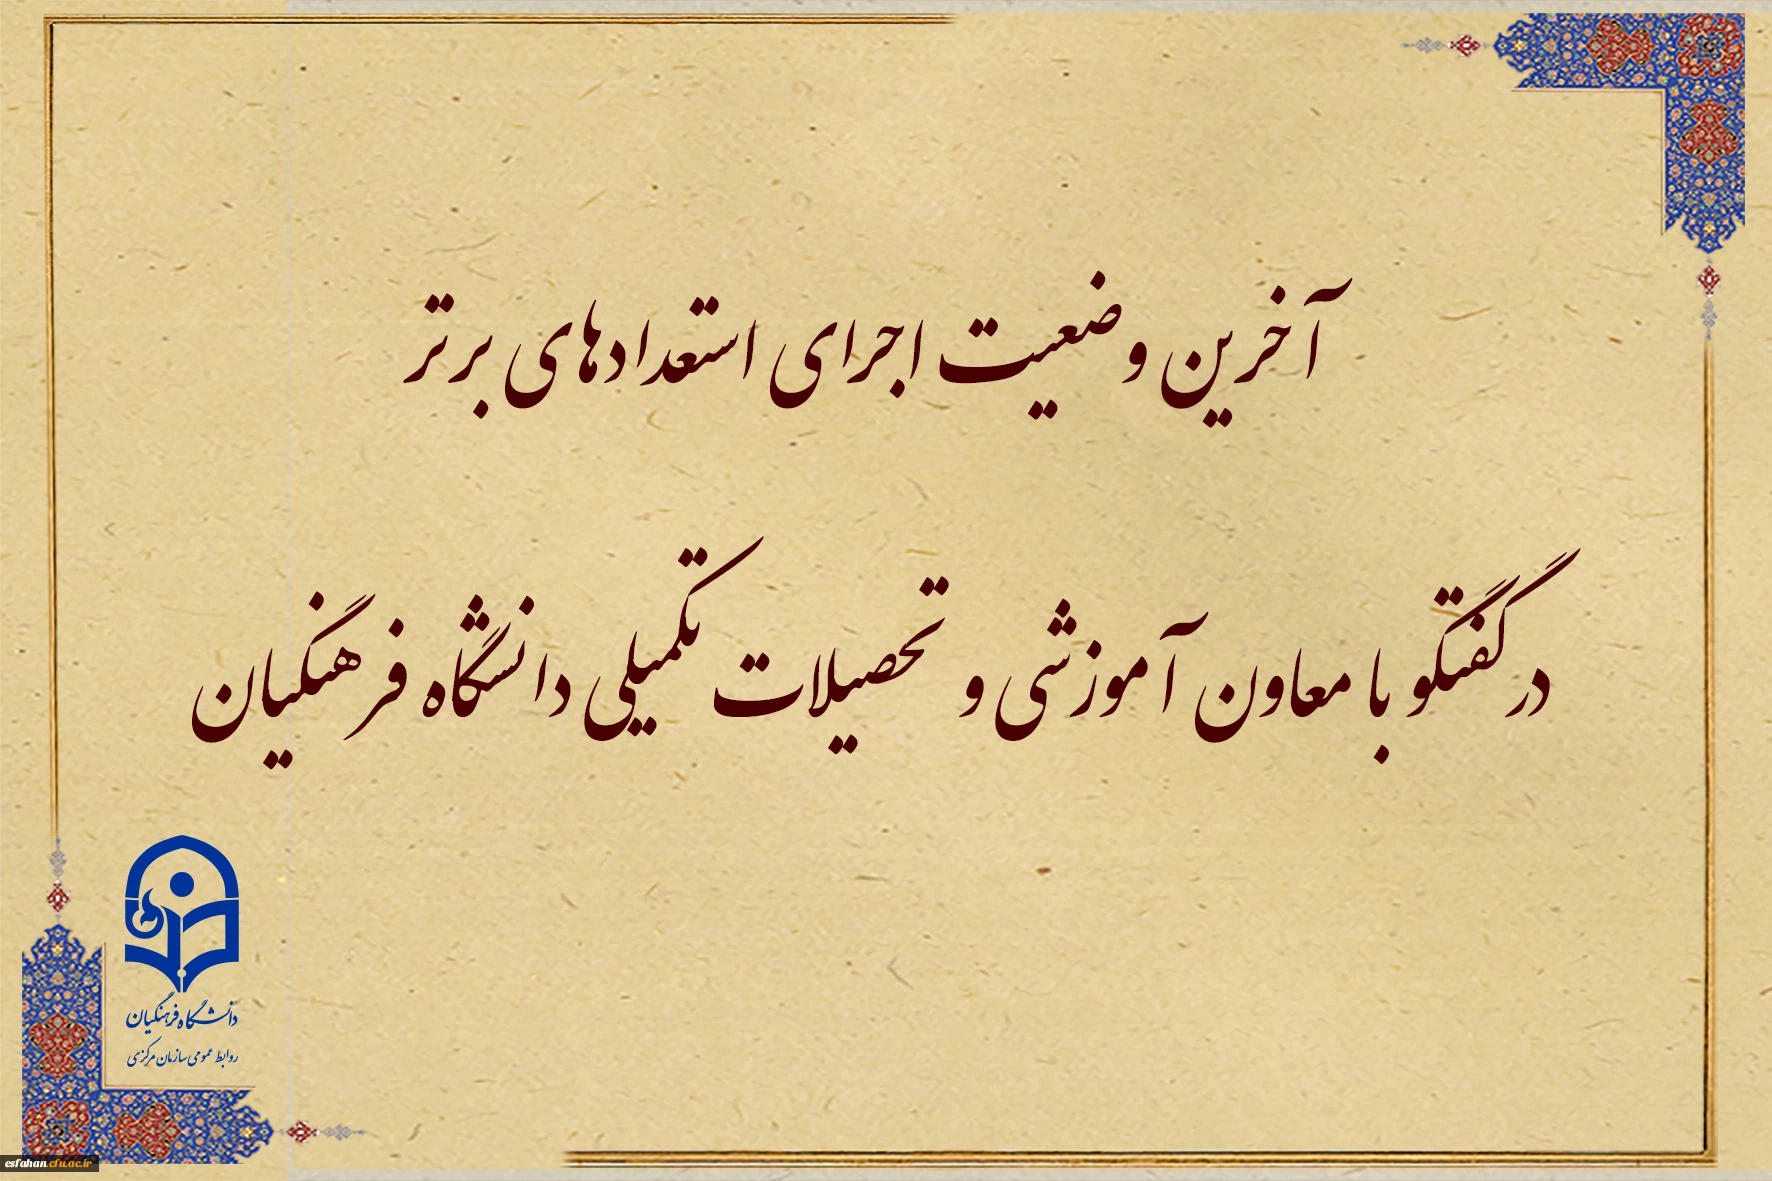 آخرین وضعیت اجرای استعدادهای برتر
در گفتگو با معاون آموزشی و تحصیلات تکمیلی دانشگاه فرهنگیان
دانشگاه فرهنگیان
روابط عمومی سازمان مرکزی
esfahan.cfu.ac.ir